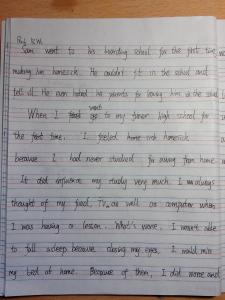 Sam went to his boarding school for the first time
making him homesick. He couldn't fit in the school and
felt ill. He even hated his parents for leaving him at the school
When I went to my junior high school for
the first time. I feeled home-sick homesick
because I had never studied far away from home
It did influence my study very much. I was always
thought of my food, TV as well as computer when
I was having a lesson. What's worse, I wasn't able
to fall asleep because closing my eyes, I would miss
my bed at home. Because of them, I did worse and